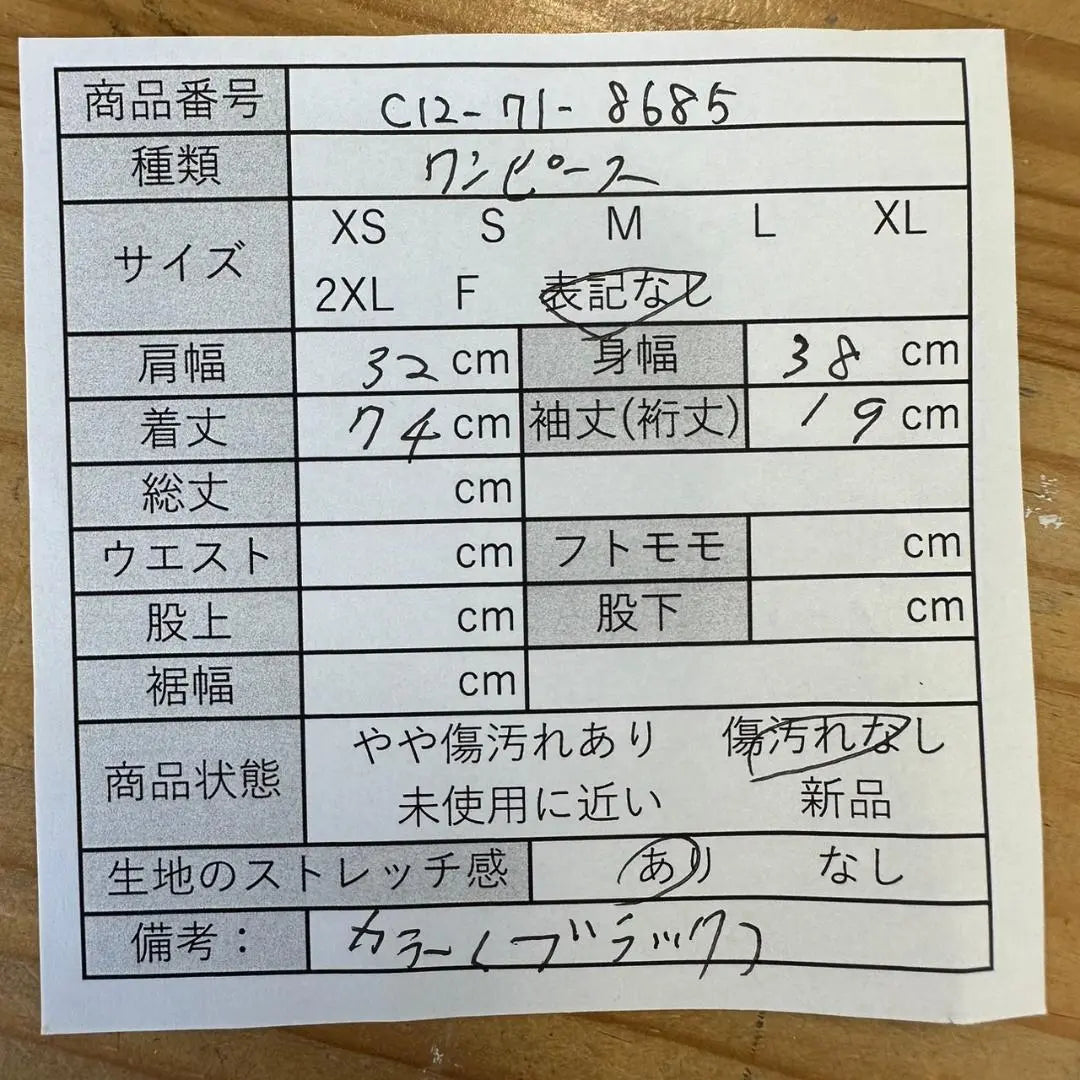 商品番号 C12-71-8685
種類 ワンピース
サイズ XS S M L XL
2XL F 表記なし
肩幅 32 cm 身幅 38 cm
着丈 74 cm 袖丈(裄丈) 19 cm
総丈 cm
ウエスト cm フトモモ cm
股上 cm 股下 cm
裾幅 cm
商品状態 やや傷汚れあり 傷汚れなし
未使用に近い 新品
生地のストレッチ感 あり なし
備考： カラー(ブラック)